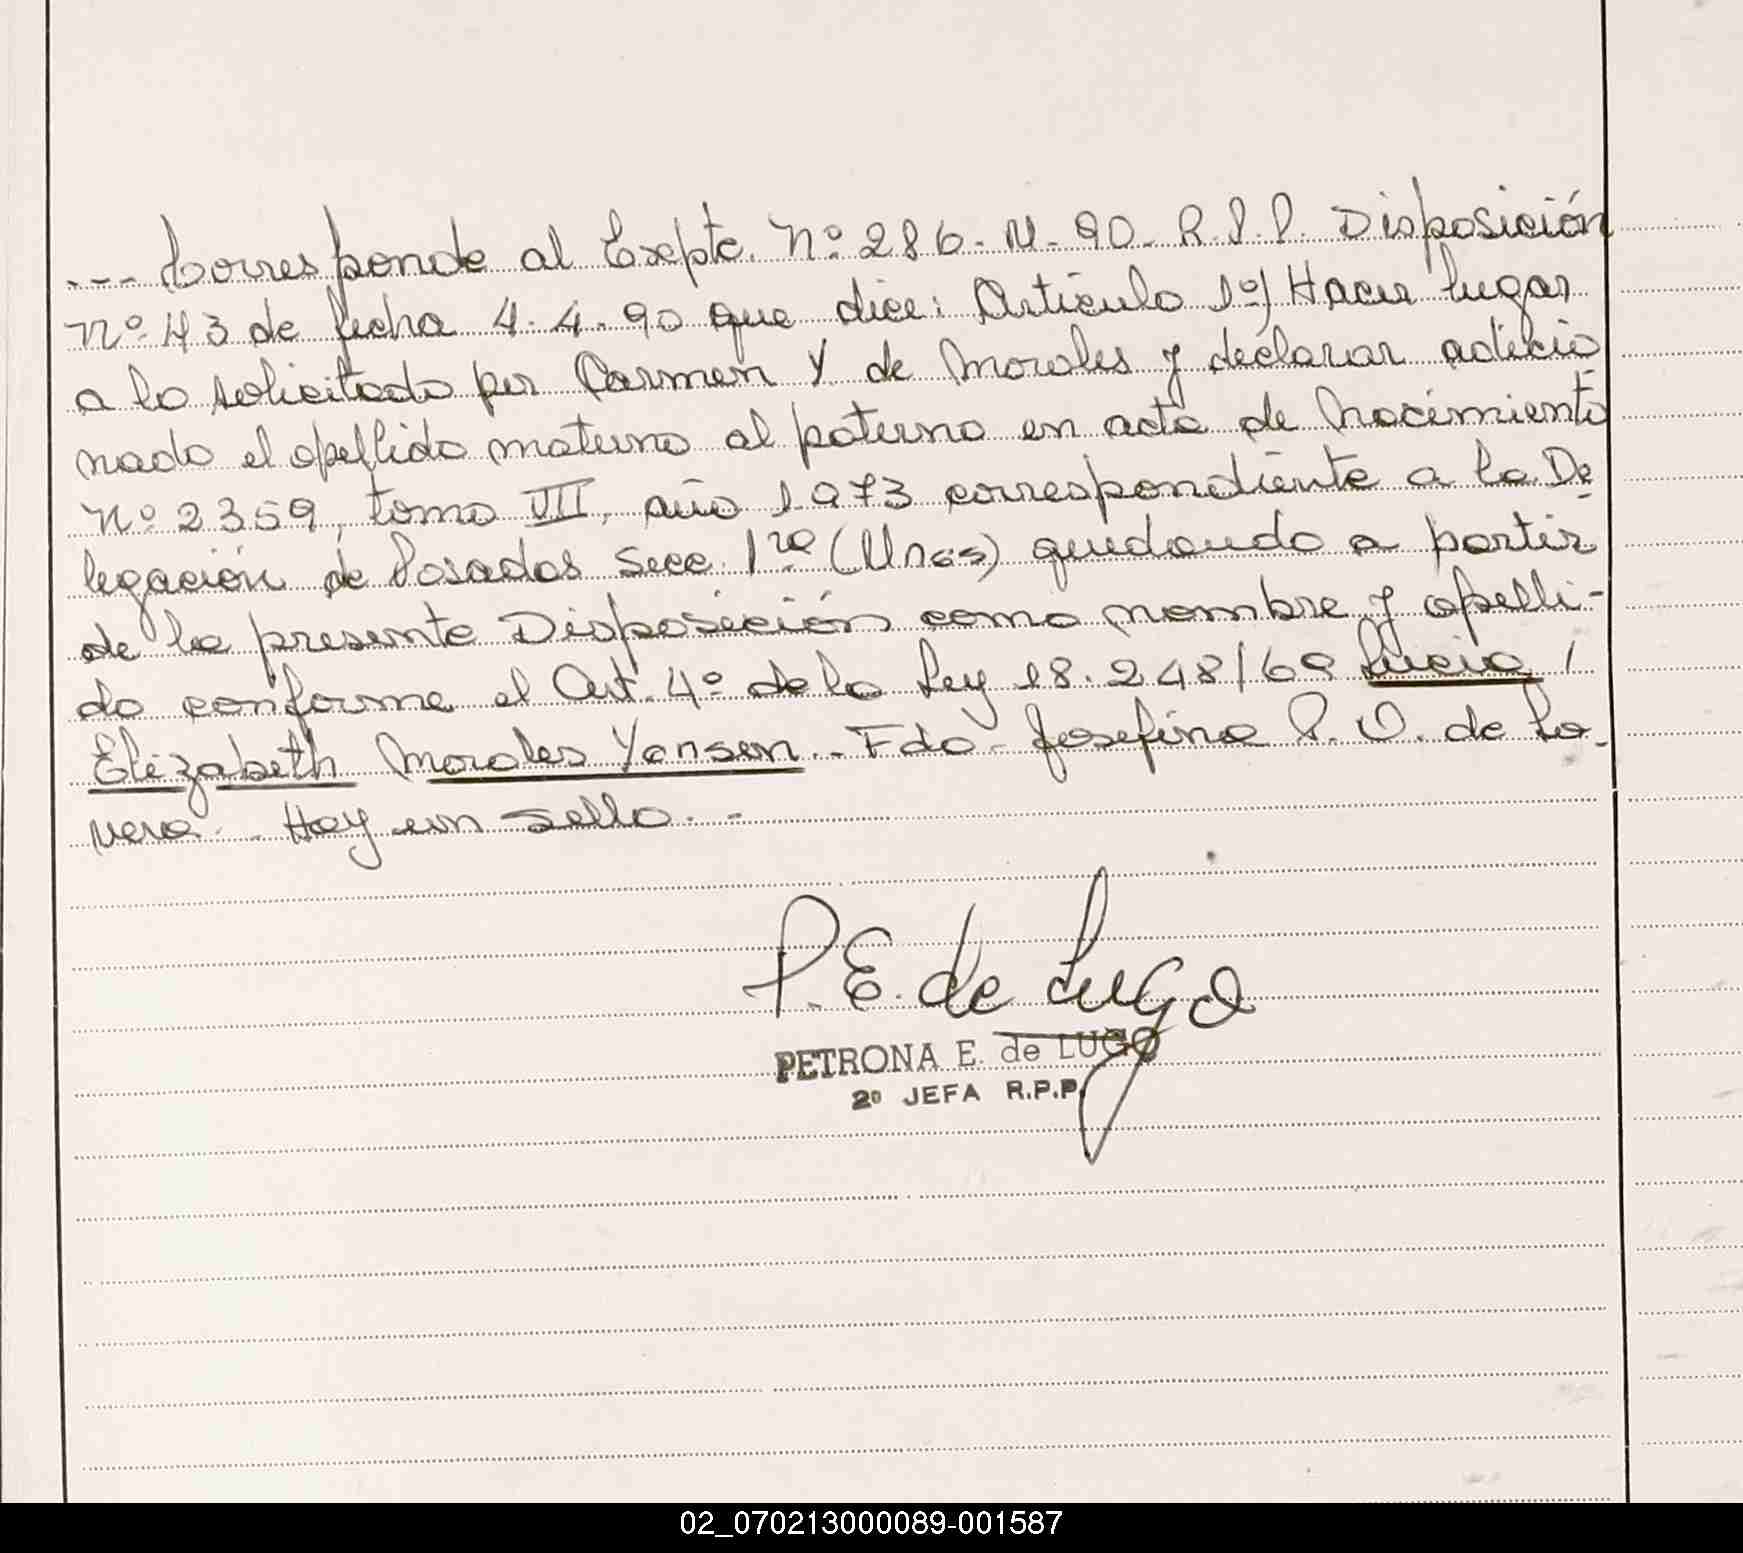 --- Corresponde al Expte. Nº 286-M-90- R.P.P. Disposición
Nº 43 de fecha 4.4.90 que dice: Artículo 1º) Hacer lugar
a lo solicitado por Carmen Y. de Morales y declarar adicio
nado el apellido materno al paterno en acta de Nacimiento
Nº 2359, tomo VII, año 1973 correspondiente a la De
legación de Posadas Secc. 1ra (Mnes) quedando a partir
de la presente Disposición como nombre y apelli-
do conforme el Art. 4º de la Ley 18.248/69 Lucia
Elizabeth Morales Yansen.- Fdo- Josefina P. O. de Lo-
vera.- Hay un sello.-
P. E. de Lugo
PETRONA E. de LUGO
2º JEFA R.P.P.
02_070213000089-001587